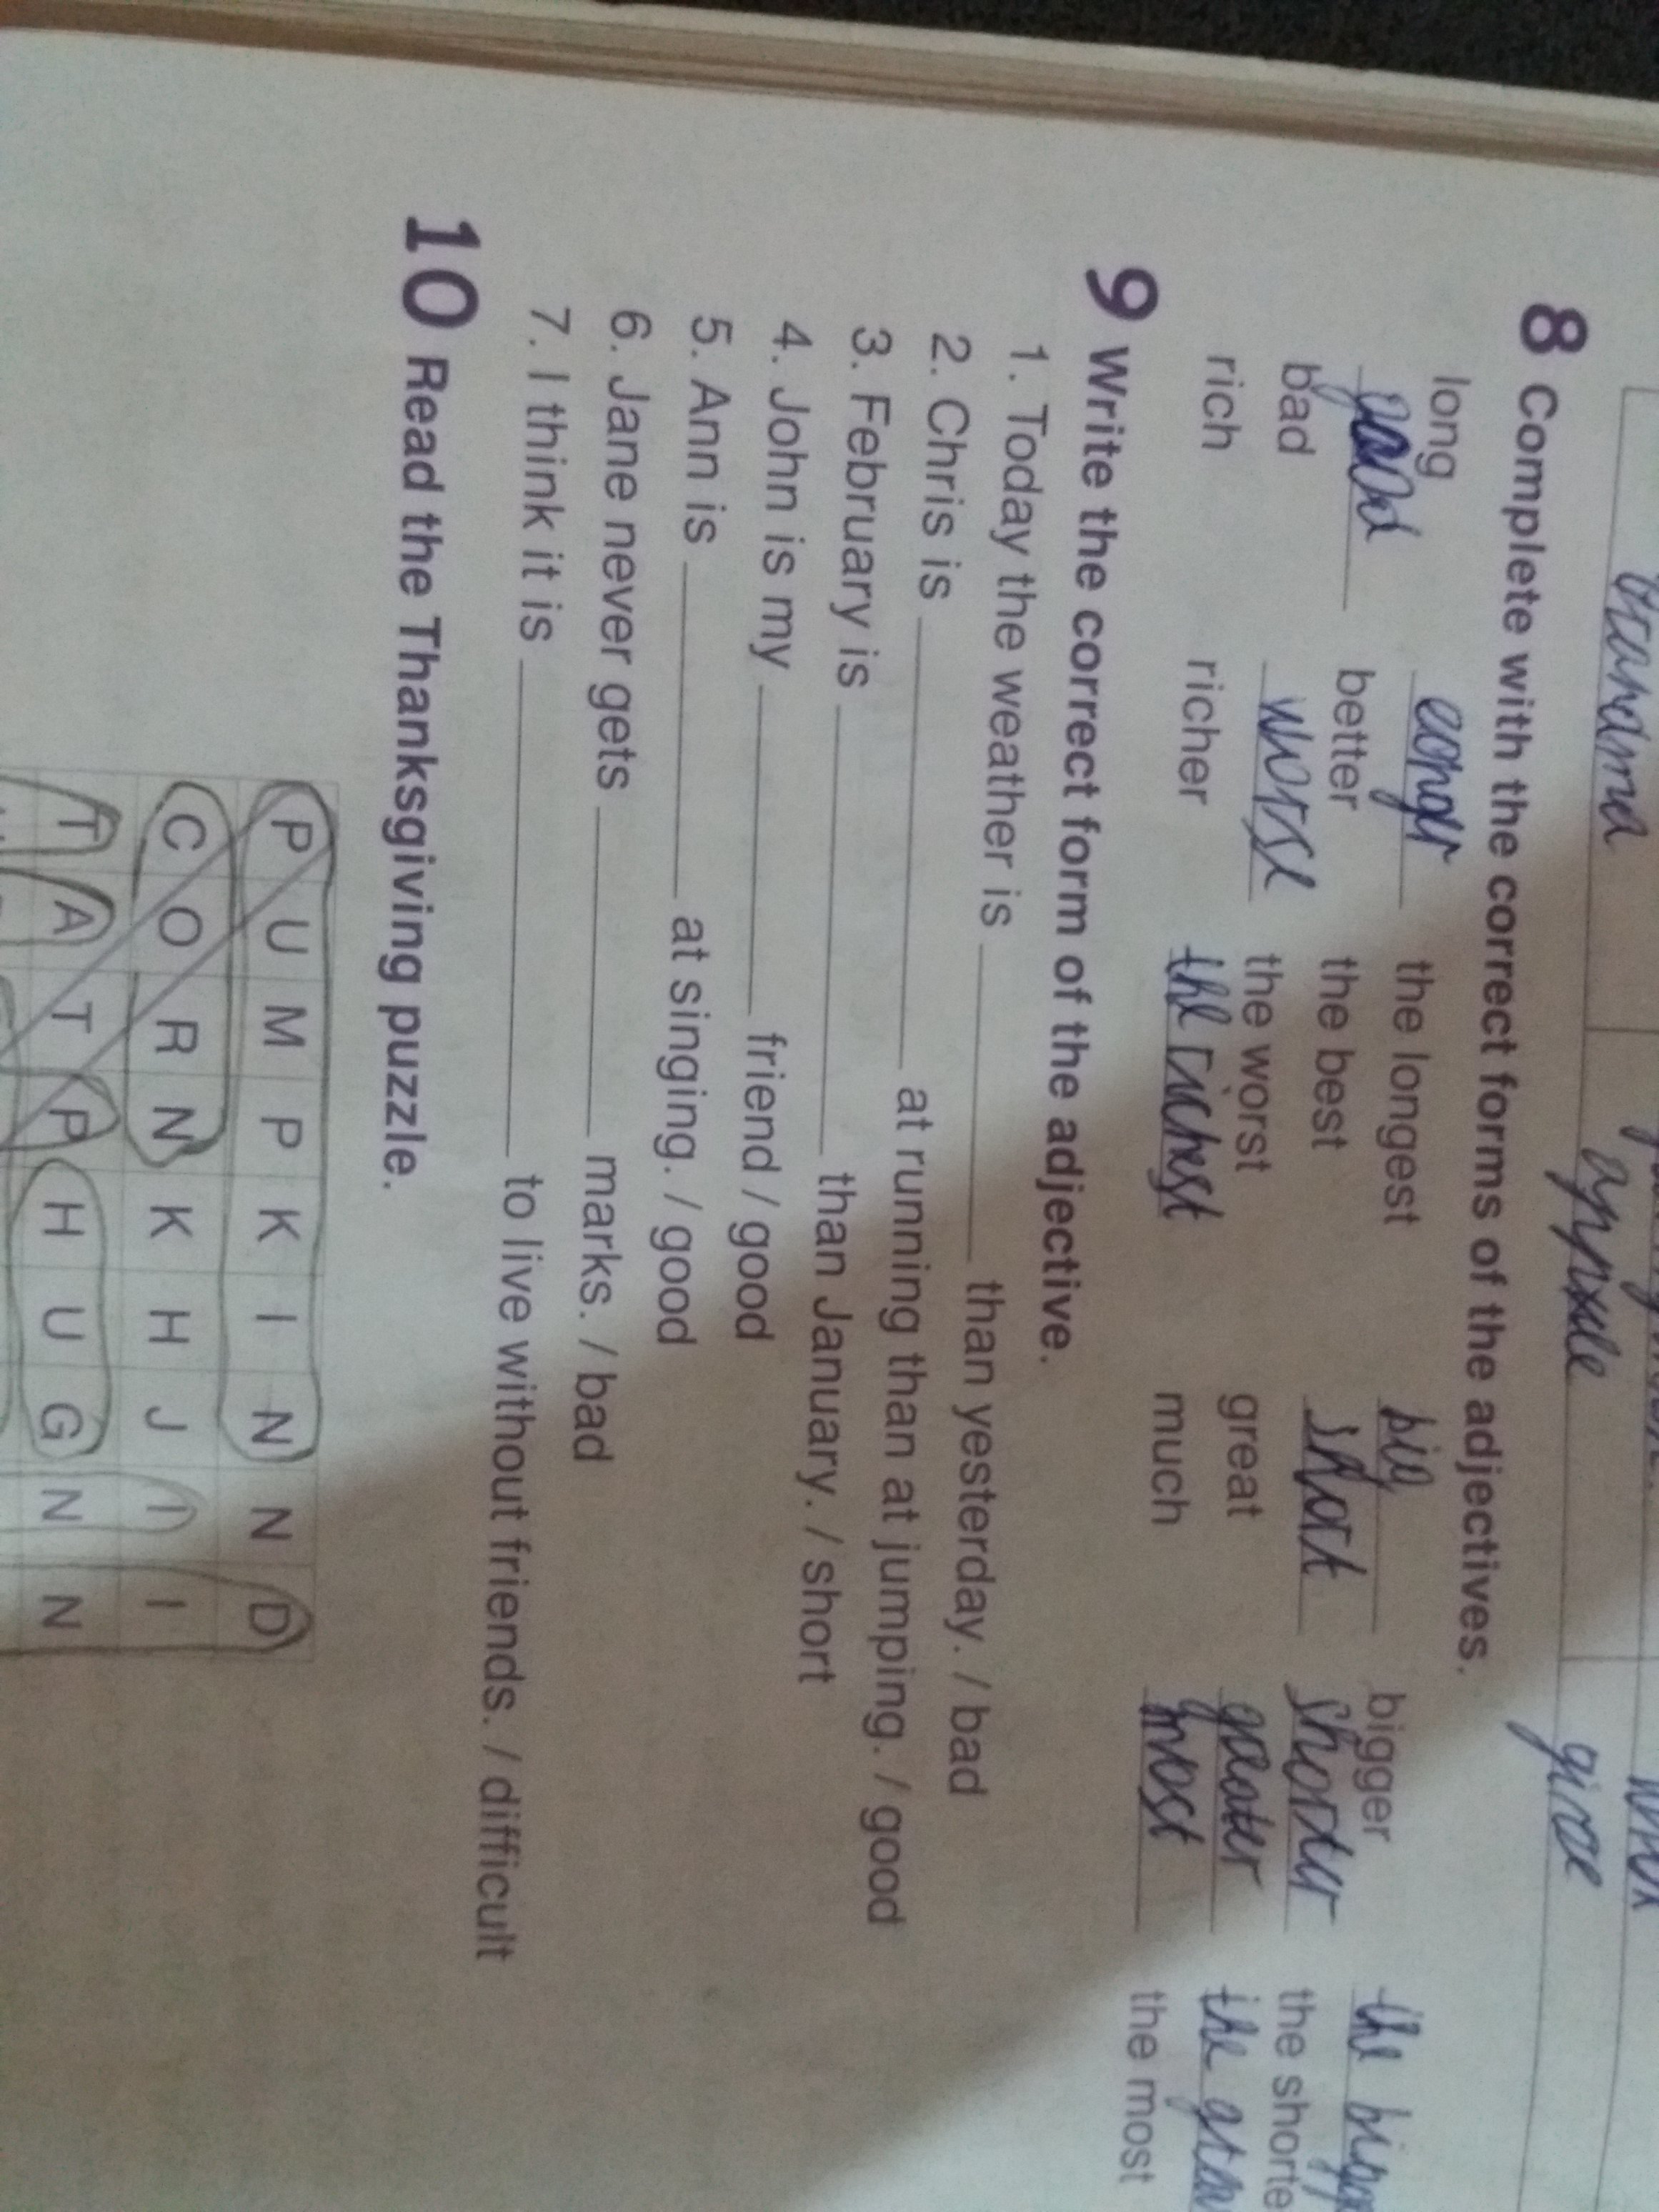 панама
8 Complete with the correct forms of the adjectives.
long longer the longest big bigger
good better the best short shorter the shorte
bad worse the worst great greater
rich richer the richest much most the most
9 Write the correct form of the adjective.
1. Today the weather is ________ than yesterday. / bad
2. Chris is ________ at running than at jumping. / good
3. February is ________ than January. / short
4. John is my ________ friend / good
5. Ann is ________ at singing. / good
6. Jane never gets ________ marks. / bad
7. I think it is ________ to live without friends. / difficult
10 Read the Thanksgiving puzzle.
P U M P K I N N D
C O R N K H J I I
T A T P H U G N N